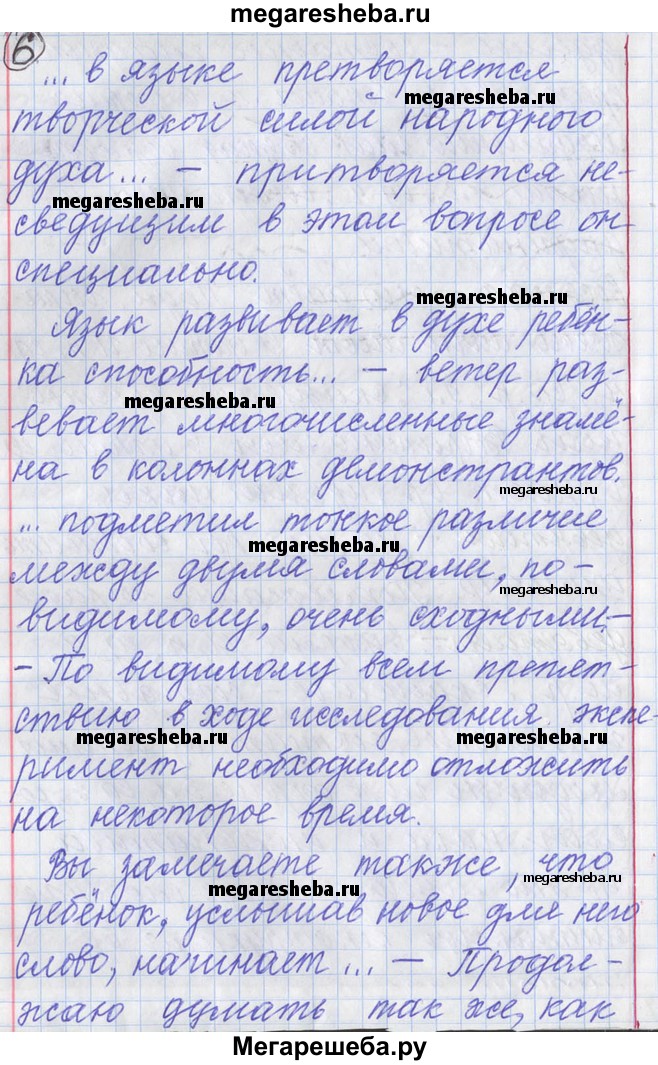 megaresheba.ru
6
... в языке претворяется
megaresheba.ru
творческой силой народного
духа... - притворяется не-
megaresheba.ru
сведущим в этом вопросе он
специально.
megaresheba.ru
Язык развивает в духе ребён-
ка способность... - ветер раз-
megaresheba.ru
вевает многочисленные знамё-
на в колоннах демонстрантов.
megaresheba.ru
... подметил тонкое различие
megaresheba.ru
между двумя словами, по-
megaresheba.ru
видимому, очень сходными. -
- По видимому всем препят-
ствию в ходе исследования экспе-
megaresheba.ru megaresheba.ru
римент необходимо отложить
на некоторое время.
Вы замечаете также, что
megaresheba.ru megaresheba.ru
ребёнок, услышав новое для него
слово, начинает ... - Продол-
жаю думать так же, как
Мегарешеба.ру